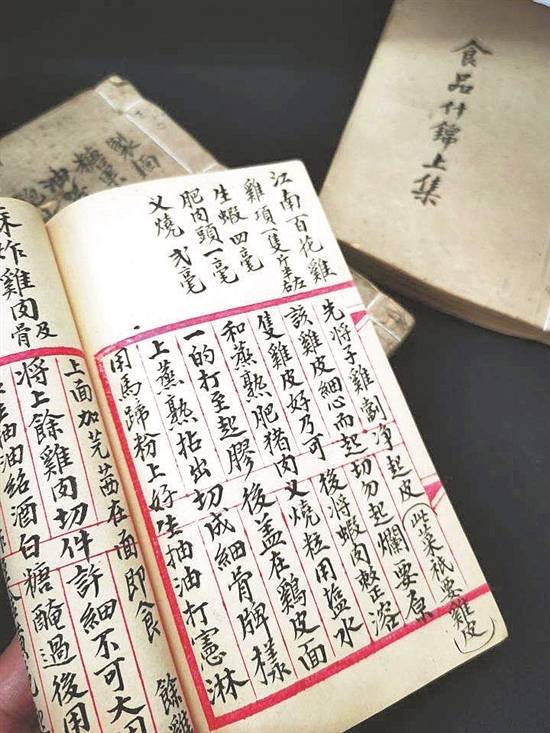 食品什錦上集
糖菓
油
江南百花雞
雞項一隻
生蝦四毫
肥肉頭一毫
叉燒 弍毫
先將子雞劏净起皮(此菜祇要雞皮)
該雞皮細心而起切勿起爛要原
隻雞皮好乃可後將蝦肉整溶
和蒸熟肥猪肉叉燒粒用塩水
一的打至起膠後盖在鷄皮面
上蒸熟拈出切成細骨牌樣
用馬蹄粉上好生抽油打憲淋
上面加芫茜在面即食 餘雞
炸雞肉及骨
將上餘雞肉切件許細不可大用
生抽油紹酒白糖醃過後用